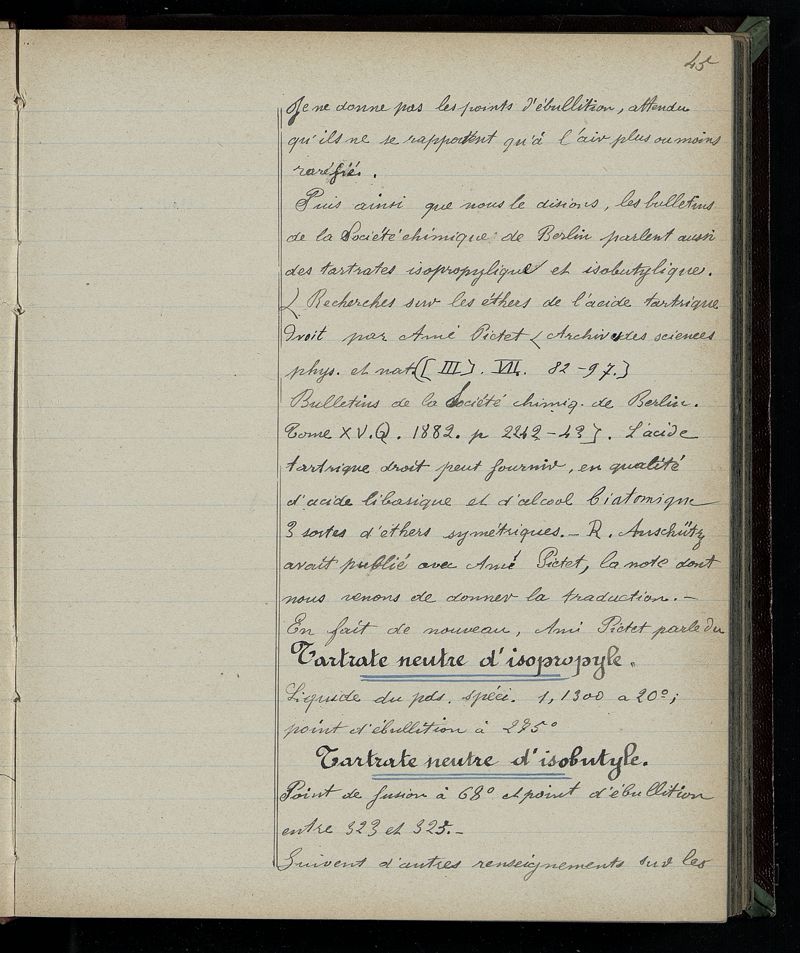 45
Je ne donne pas les points d'ébullition, attendu
qu'ils ne se rapportent qu'à l'air plus ou moins
raréfié.
Puis ainsi que nous le disions, les bulletins
de la Société chimique de Berlin parlent aussi
des tartrates isopropylique et isobutylique.
( Recherches sur les éthers de l'acide tartrique
droit par Amé Pictet ( Archives des sciences
phys. et nat. ([III]. VII. 82-97.)
Bulletins de la Société chimiq. de Berlin.
Tome XV. Q. 1882. p 2242-43). L'acide
tartrique droit peut fournir, en qualité
d'acide bibasique et d'alcool biatomique
3 sortes d'éthers symétriques. - R. Anschütz
avait publié avec Amé Pictet, la note dont
nous venons de donner la traduction. -
En fait de nouveau, Amé Pictet parle du
Tartrate neutre d'isopropyle.
Liquide du pds. spéci. 1,1300 a 20°;
point d'ébullition à 275°
Tartrate neutre d'isobutyle.
Point de fusion à 68° et point d'ébullition
entre 323 et 325. -
Suivent d'autres renseignements sur les